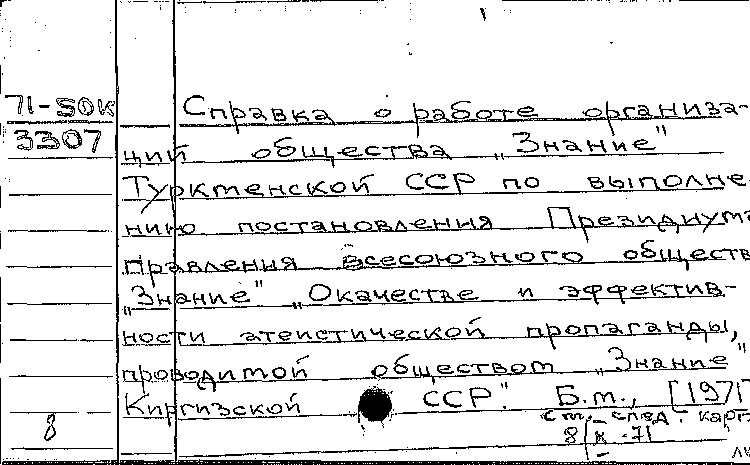 71-50К Справка о работе организа-
3307 ций общества „Знание"
Туркменской ССР по выполне
нию постановления Президиума
правления всесоюзного обществ
„Знание" „О качестве и эффектив-
ности атеистической пропаганды,
проводимой обществом „Знание"
Киргизской ССР". Б.м., [1971
8 см. след. карт.
8/х-71